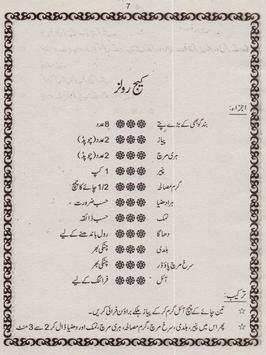 7
کیبج رولز
اجزاء:
بند گوبھی کے بڑے پتے ❋❋❋ 8عدد
پیاز ❋❋❋ 2عدد(چوپڈ)
ہری مرچ ❋❋❋ 2عدد(چوپڈ)
پنیر ❋❋❋ 1 کپ
گرم مصالحہ ❋❋❋ 1/2 چائے کا چمچ
ہرا دھنیا ❋❋❋ حسب ضرورت
نمک ❋❋❋ حسب ذائقہ
دھاگا ❋❋❋ رول باندھنے کے لیے
ہلدی ❋❋❋ چٹکی بھر
سرخ مرچ پاؤڈر ❋❋❋ چٹکی بھر
آئل ❋❋❋ فرائنگ کے لیے
ترکیب:
☆ تین چائے کے چمچ آئل گرم کر کے پیاز ہلکے براؤن فرائی کریں۔
☆ پھر اس میں پنیر، ہلدی، سرخ مرچ، گرم مصالحہ، ہری مرچ، نمک اور دھنیا ڈال کر 2 سے 3 منٹ